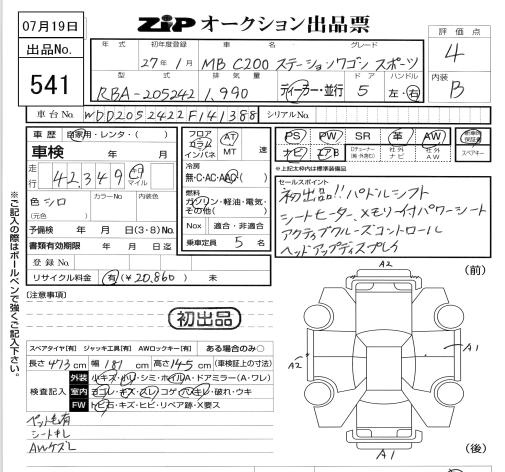 07月19日
ZIP オークション出品票
出品No.
541
年式 初年度登録 車名 グレード
27年 1月 MB C200 ステーションワゴン スポーツ
型式 排気量 ドア ハンドル
RBA-205242 1,990 ディーラー・並行 5 左・右
評価点
4
内装
B
車台No. WDD2052422F141388 シリアルNo.
車歴 自家用・レンタ・( )
車検 年 月
走行 42,349 キロ マイル
色 シロ (元色) カラーNo 内装色
予備検 年 月 日(3・8)No.
書類有効期限 年 月 日迄
登録No.
リサイクル料金 有(¥20,860) 未
フロア コラム インパネ AT MT 速
冷房 無・C・AC・AAC
燃料 ガソリン・軽油・電気・その他( )
Nox 適合・非適合
乗車定員 5 名
PS PW SR 革 AW 新車時保証書
ナビ エアB Dチューナー(純・外含む) 社外ナビ 社外AW スペアキー
※上記太枠内は標準装備品
セールスポイント
初出品!! パドルシフト
シートヒーター、メモリイ付パワーシート
アクティブクルーズコントロール
ヘッドアップディスプレイ
※ご記入の際はボールペンで強くご記入下さい。
[注意事項]
初出品
スペアタイヤ[有] ジャッキ工具[有] AWロックキー[有] ある場合のみ○
長さ 473 cm 幅 181 cm 高さ 145 cm (車検証上の寸法)
検査記入
外装 小キズ・小リ・シミ・ホイルA・ドアミラー(A・ワレ)
室内 ヨゴレ・キズ・スレ・コゲ・穴・キレ・破れ・ウキ
FW トビ石・キズ・ヒビ・リペア跡・X要ス
ペット毛有
シートキレ
AWケズレ
A2 (前)
A2 A1
A1 (後)